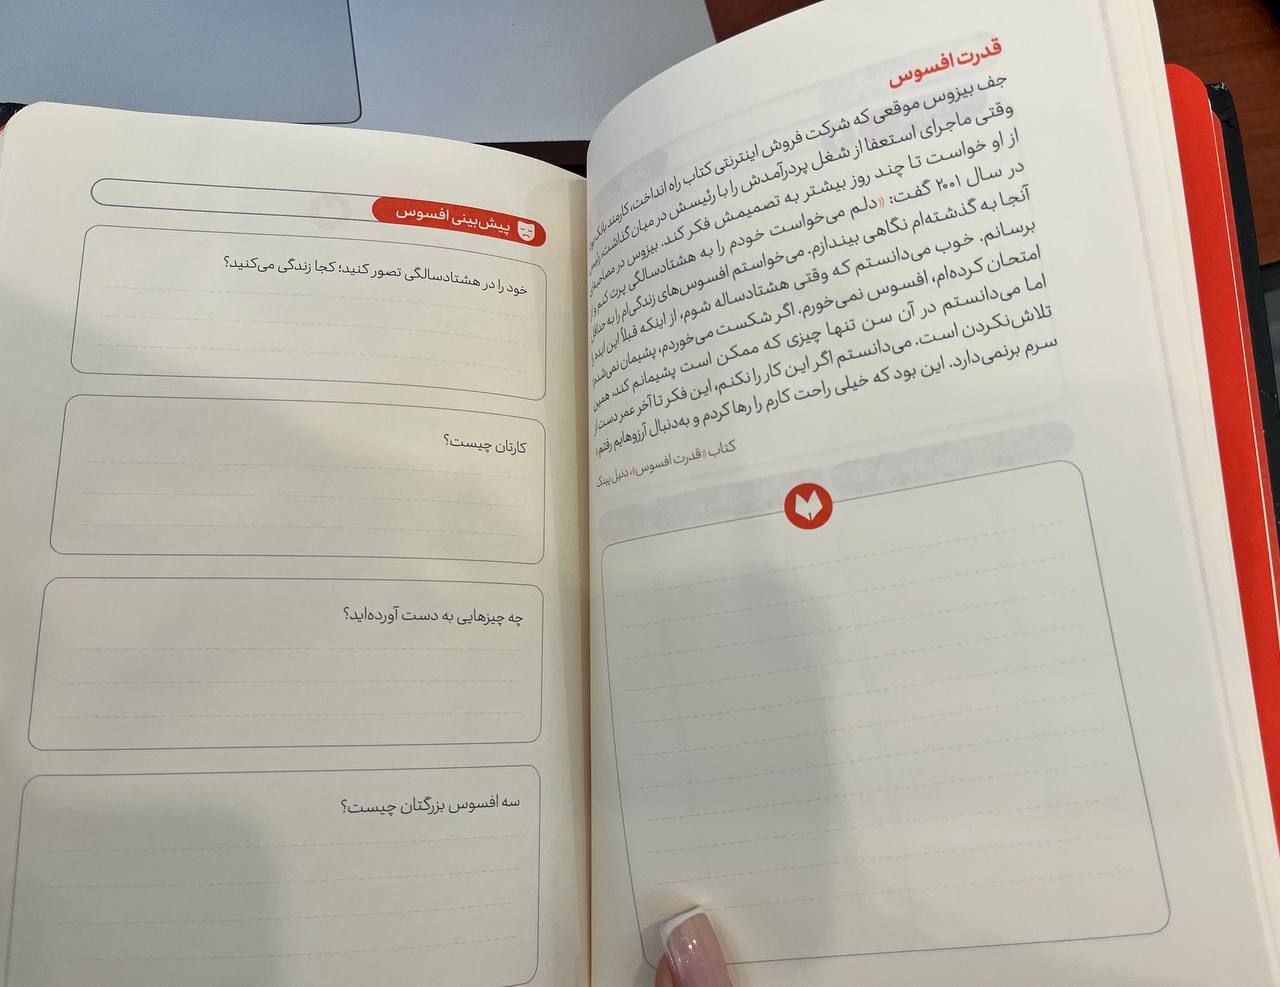 قدرت افسوس
جف بیزوس موقعی که شرکت فروش اینترنتی کتاب راه انداخت، کارمند بانک بود.
وقتی ماجرای استعفا از شغل پردرآمدش را با رئیسش در میان گذاشت، رئیس
از او خواست تا چند روز بیشتر به تصمیمش فکر کند. بیزوس در مصاحبه‌ای
در سال ۲۰۰۱ گفت: «دلم می‌خواست خودم را به هشتادسالگی پرت کنم و از
آنجا به گذشته‌ام نگاهی بیندازم. می‌خواستم افسوس‌های زندگی‌ام را به حداقل
برسانم. خوب می‌دانستم که وقتی هشتادساله شوم، از اینکه قبلاً این ایده را
امتحان کرده‌ام، افسوس نمی‌خورم. اگر شکست می‌خوردم، پشیمان نمی‌شدم؛
اما می‌دانستم در آن سن تنها چیزی که ممکن است پشیمانم کند، همین
تلاش‌نکردن است. می‌دانستم اگر این کار را نکنم، این فکر تا آخر عمر دست از
سرم برنمی‌دارد. این بود که خیلی راحت کارم را رها کردم و به‌دنبال آرزوهایم رفتم.»
کتاب «قدرت افسوس»، دنیل پینک
پیش‌بینی افسوس
خود را در هشتادسالگی تصور کنید؛ کجا زندگی می‌کنید؟
کارتان چیست؟
چه چیزهایی به دست آورده‌اید؟
سه افسوس بزرگتان چیست؟